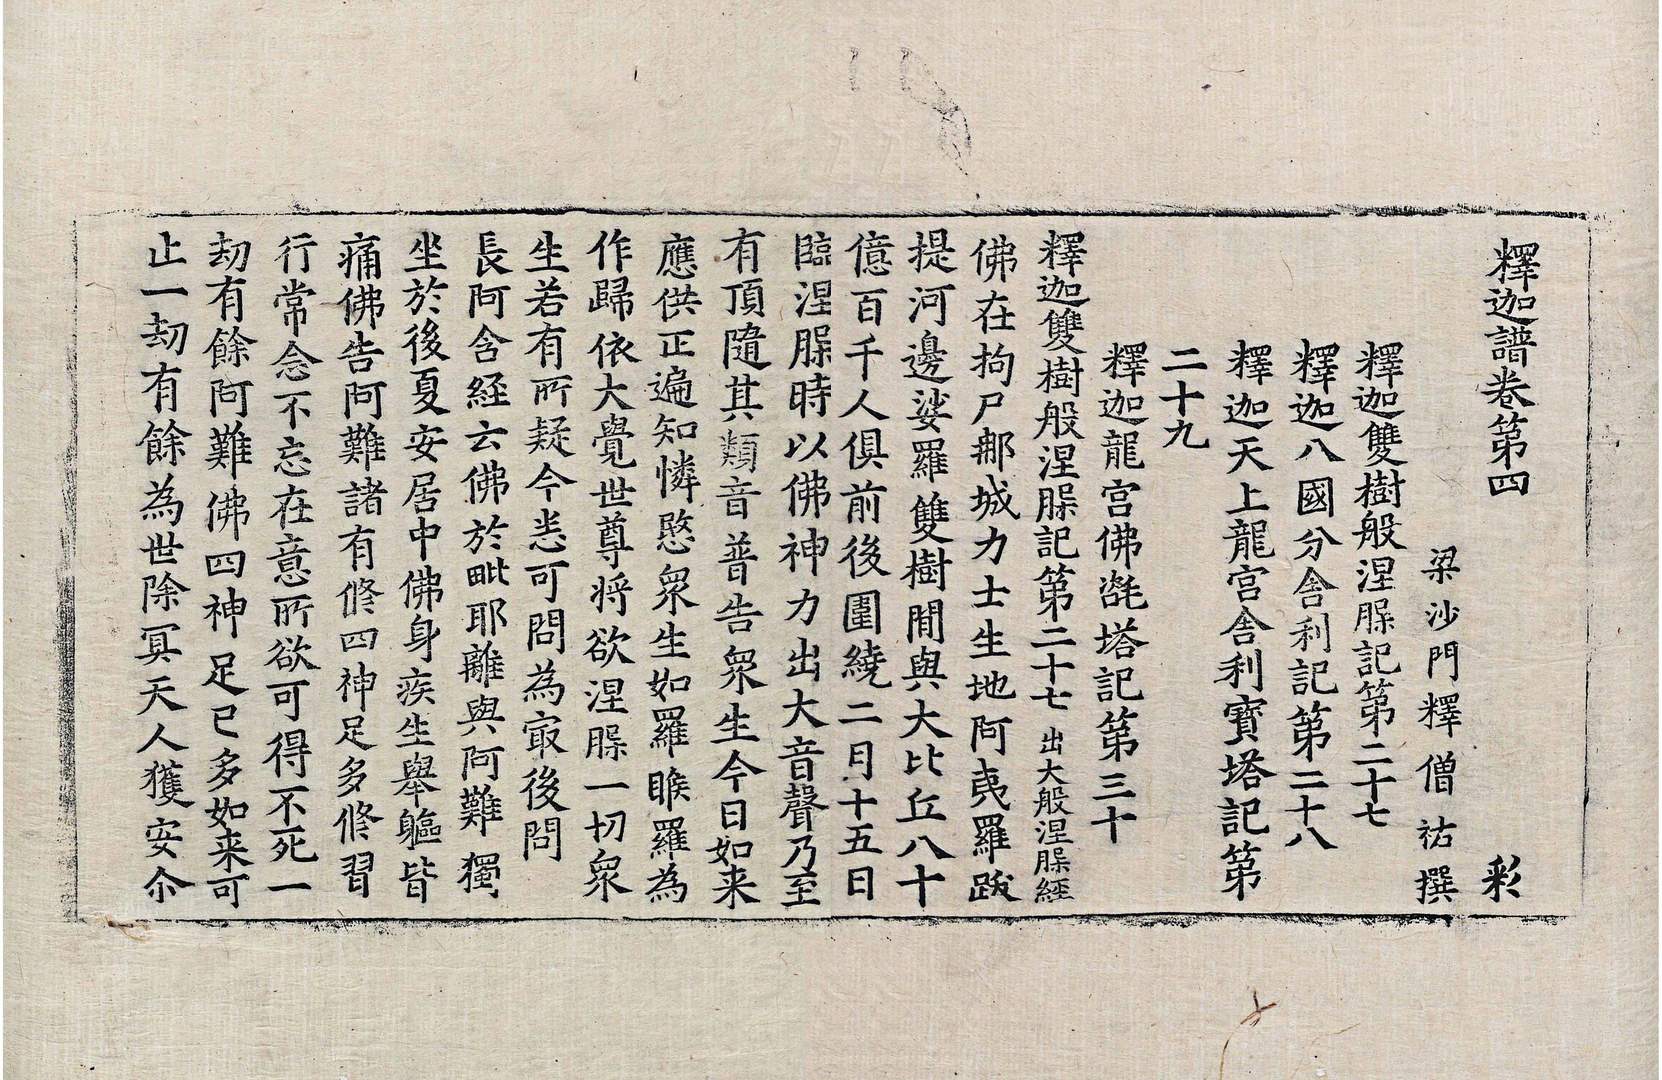 釋迦譜卷第四 彩
梁沙門釋僧祐撰
釋迦雙樹般涅槃記第二十七
釋迦八國分舍利記第二十八
釋迦天上龍宮舍利寶塔記第
二十九
釋迦龍宮佛髭塔記第三十
釋迦雙樹般涅槃記第二十七 出大般涅槃經
佛在拘尸那城力士生地阿夷羅跋
提河邊娑羅雙樹間與大比丘八十
億百千人俱前後圍繞二月十五日
臨涅槃時以佛神力出大音聲乃至
有頂隨其類音普告衆生今日如来
應供正遍知憐愍衆生如羅睺羅為
作歸依大覺世尊将欲涅槃一切衆
生若有所疑今悉可問為㝡後問
長阿含経云佛於毗耶離與阿難獨
坐於後夏安居中佛身疾生舉軀皆
痛佛告阿難諸有修四神足多修習
行常念不忘在意所欲可得不死一
劫有餘阿難佛四神足已多如来可
止一劫有餘為世除冥天人獲安尒